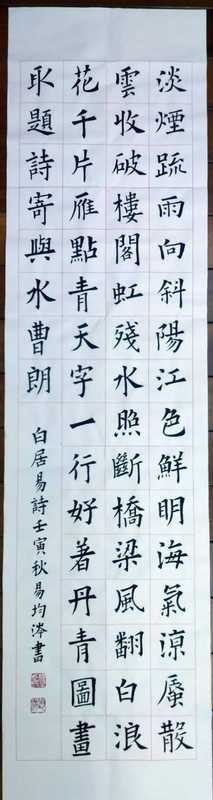 淡煙疏雨向斜陽江色鮮明海氣涼蜃散
雲收破樓閣虹殘水照斷橋梁風翻白浪
花千片雁點青天字一行好著丹青圖畫
取題詩寄與水曹朗
白居易詩壬寅秋易均涔書